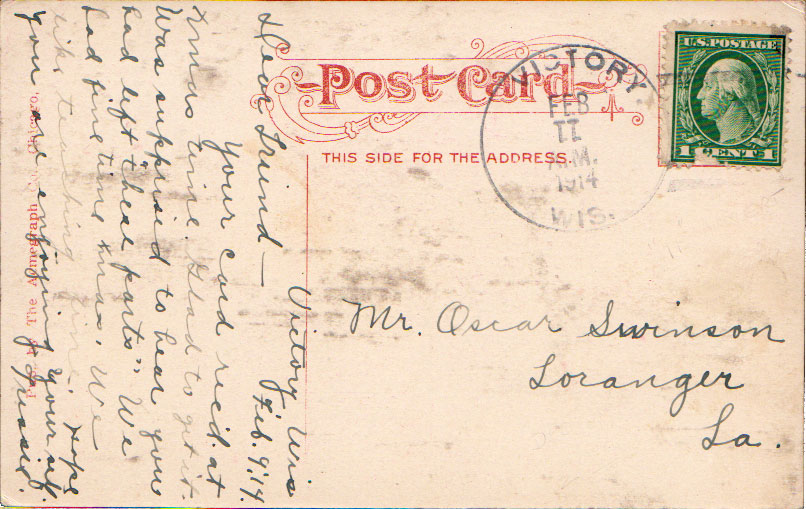 Post Card
THIS SIDE FOR THE ADDRESS.
VICTORY
FEB
11
A.M.
1914
WIS.
U.S. POSTAGE
1 CENT 1
Mr. Oscar Swinson
Loranger
La.
Victory Wis
Feb. 9, '14.
Dear Friend—
Your card rec'd at
Xmas time. Glad to get it.
Was suppried to hear you
had left "these parts". We
had fine time Xmas. We
like teaching fine. Hope
you are enjoying yourself.
The Acmegraph Co., Chicago.